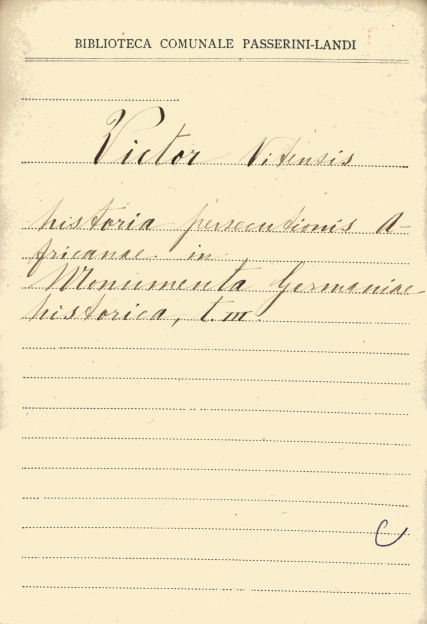 BIBLIOTECA COMUNALE PASSERINI-LANDI
Victor Vitensis
historia persecutionis A-
fricanae. in
Monumenta Germaniae
historica, t. III.
C